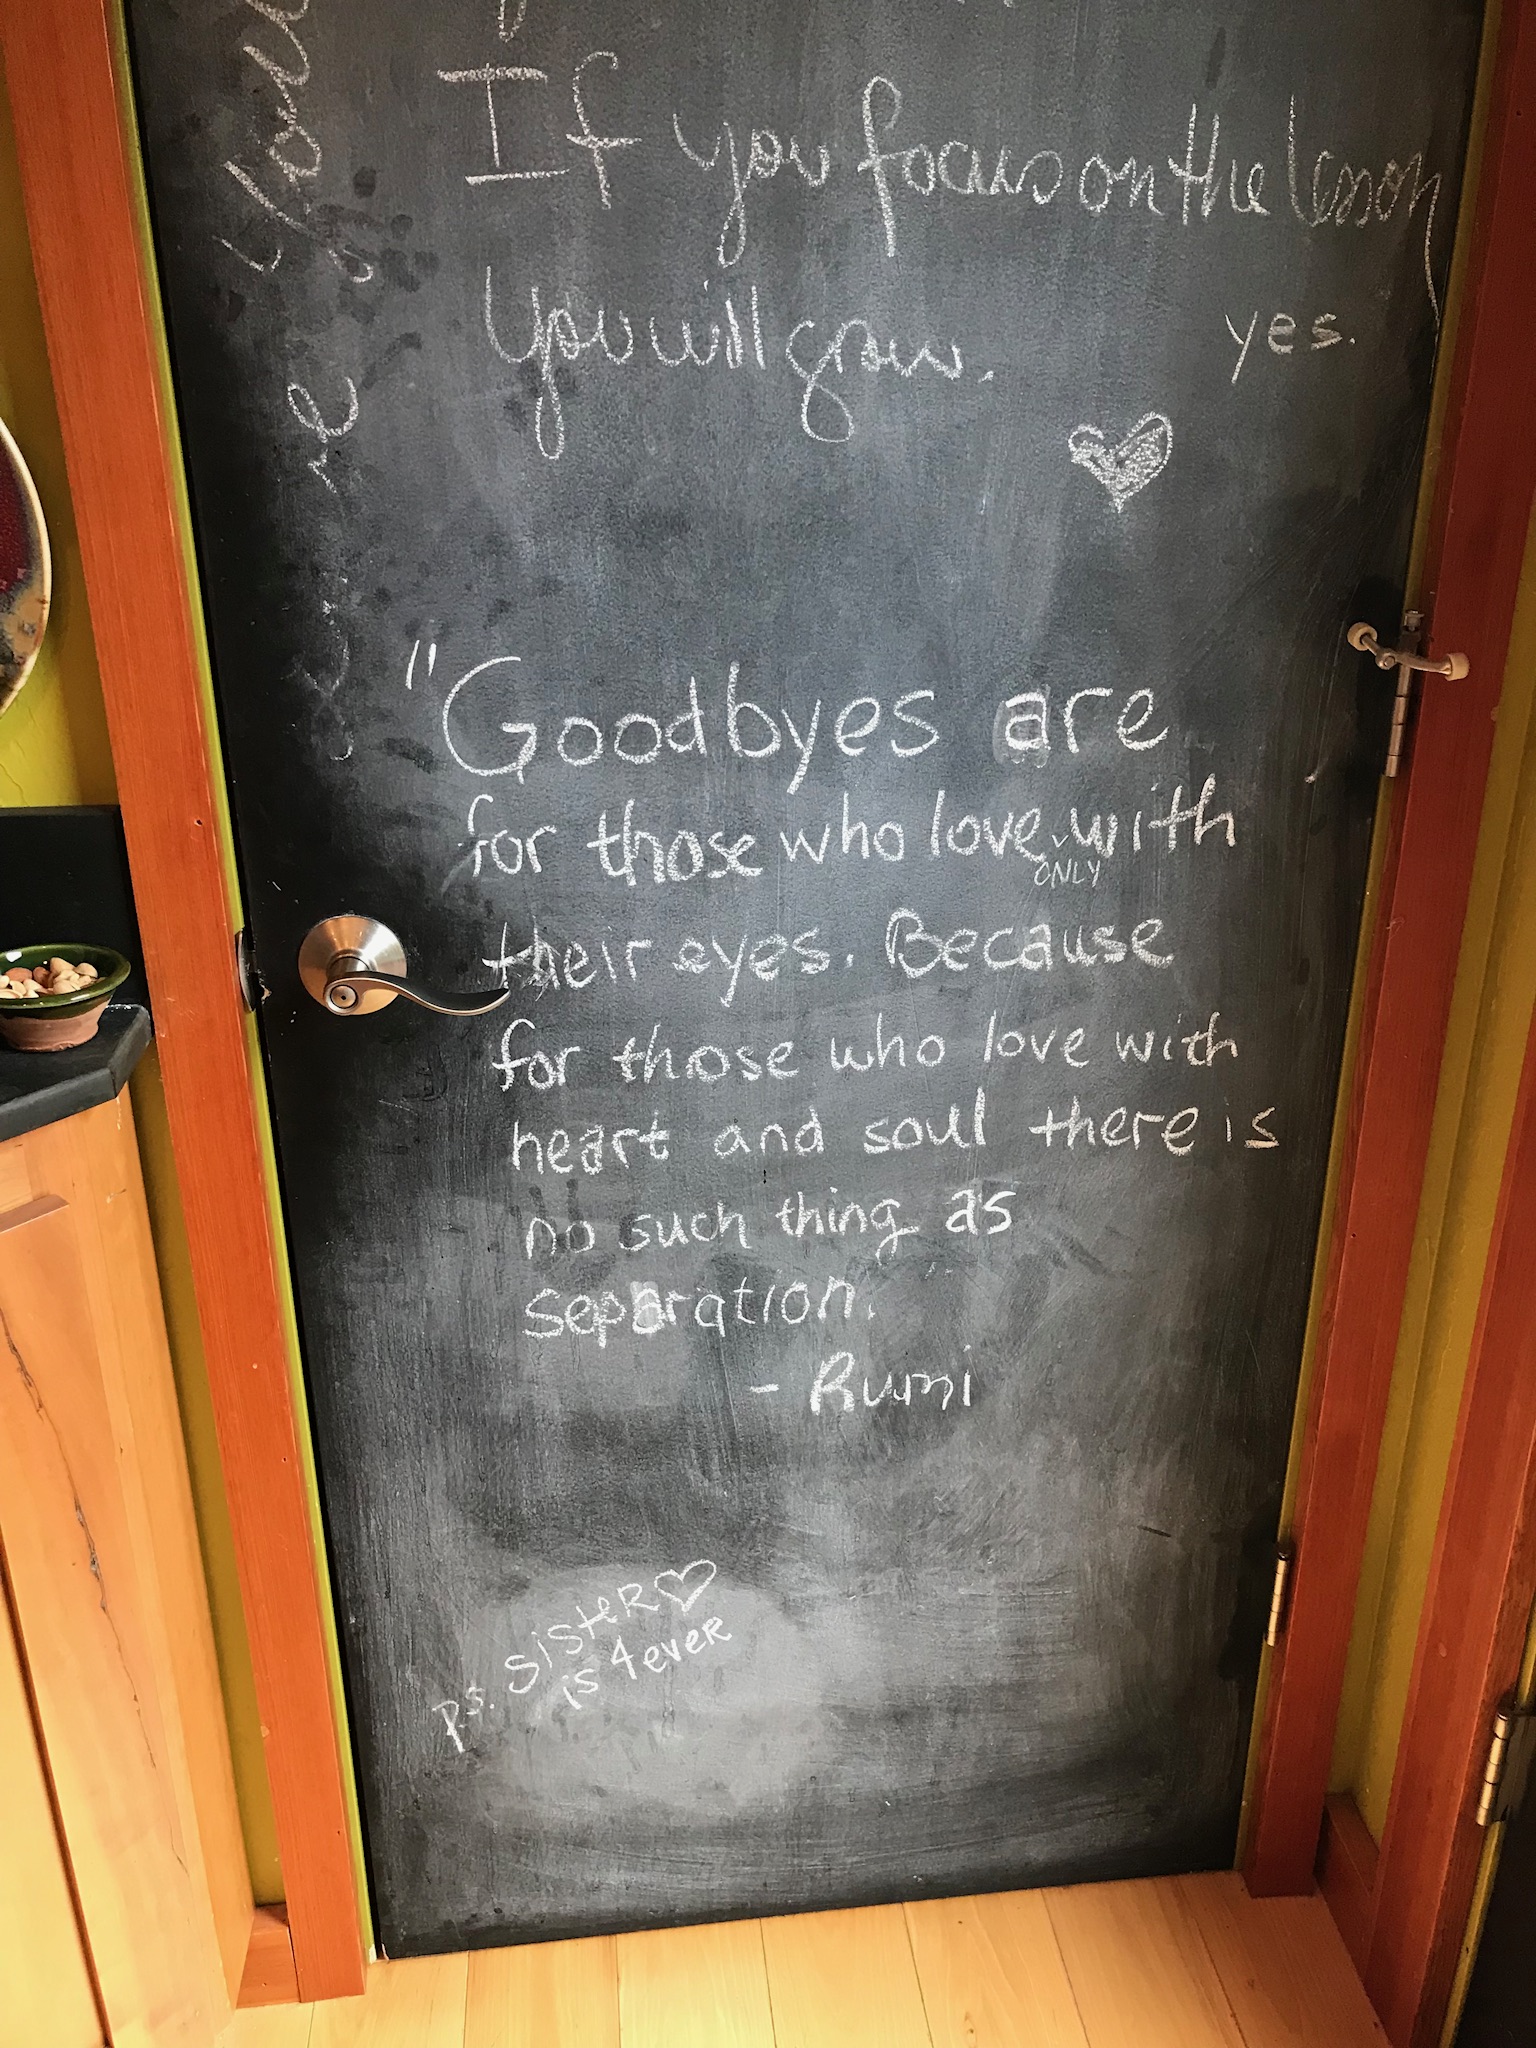 If you focus on the lesson
you will grow.
yes.
"Goodbyes are
for those who love ONLY with
their eyes. Because
for those who love with
heart and soul there is
no such thing as
separation.
- Rumi
p.s. SisteR
is 4eveR